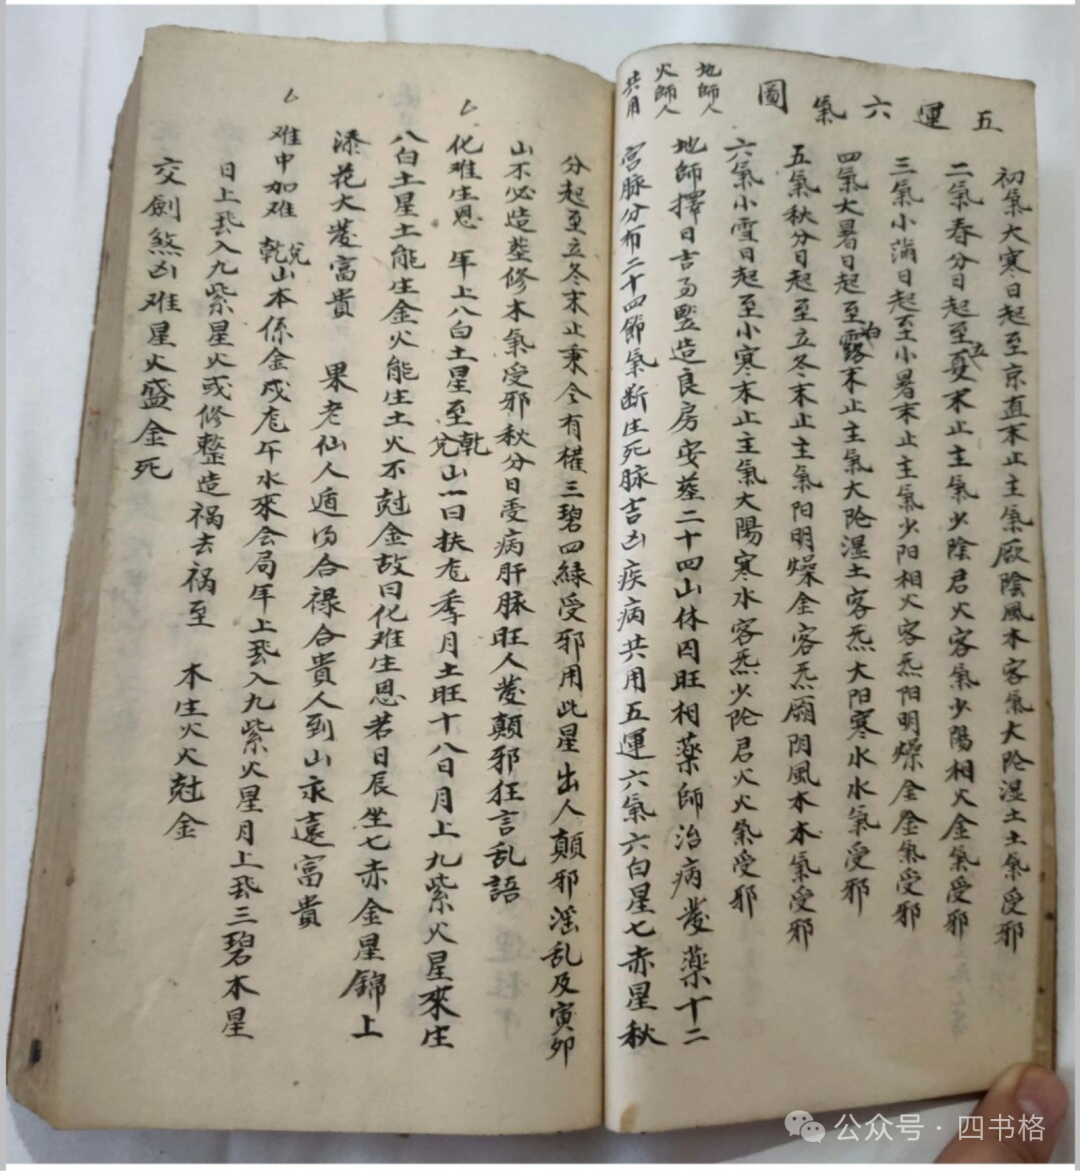 五運六氣圖
地師人
火師人
共用
初氣大寒日起至京直末止主氣厥陰風木客氣大陰湿土土氣受邪
二氣春分日起至立夏末止主氣少陰君火客氣少陽相火金氣受邪
三氣小满日起至小暑末止主氣少阳相火客炁阳明燥金金氣受邪
四氣大暑日起至白露末止主氣大阴湿土客炁大阳寒水水氣受邪
五氣秋分日起至立冬末止主氣阳明燥金客炁厥阴風木木氣受邪
六氣小雪日起至小寒末止主氣大陽寒水客炁少阴君火火氣受邪
地師擇日吉凶竪造良房安塟二十四山休囚旺相藥師治病發藥十二
宫脉分布二十四節氣断生死脉吉凶疾病共用五運六氣六白星七赤星秋
分起至立冬末止秉令有權三碧四緑受邪用此星出人顛邪淫乱及寅夘
山不必造塟修木氣受邪秋分日受病肝脉旺人發顛邪狂言乱語
化难生恩 年上八白土星至乾兌山一曰扶尨季月土旺十八日月上九紫火星來生
八白土星土能生金火能生土火不尅金故曰化难生恩若日辰坐七赤金星錦上
添花大發富貴 果老仙人遁得合禄合貴人到山永遠富貴
难中加难 乾兌山本係金成尨年水來会局年上飛入九紫火星月上飛三碧木星
日上飛入九紫星火或修整造禍去禍至 木生火火尅金
交劍煞凶难星火盛金死
公众号·四书格